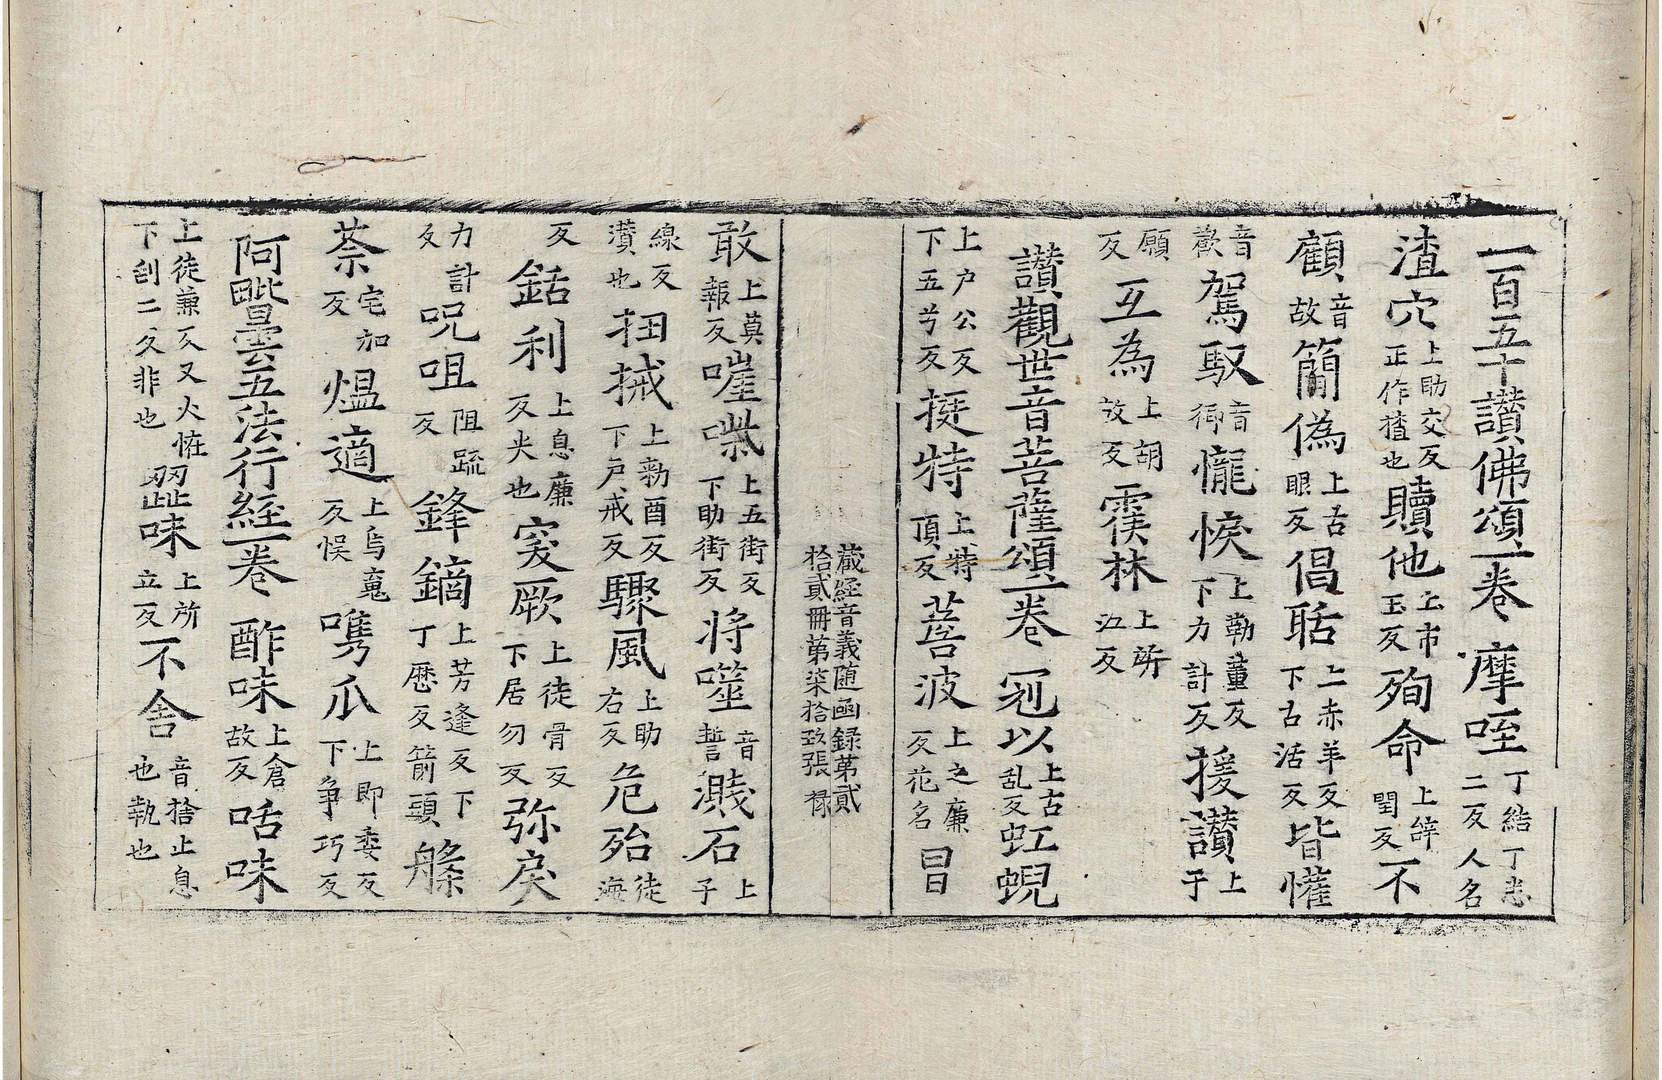 一百五十讃佛頌一卷 摩咥丁結丁悉二反人名
渣穴上助交反正作樝也贖他上市玉反殉命上辝閏反不
顧音故簡僞上古眼反倡聒上赤羊反下古活反皆懽
音歡駕馭音御㦬悷上勒董反下力計反援讃上于
願反互為上胡故反霍林上所江反
讃觀世音菩薩頌一卷 冠以上古乱反虹蜺
上户公反下五兮反挺特上特頂反蒼波上之廉反花名冒
藏經音義随函録第貳
拾貳冊第柒拾玖張 禄
敢上莫報反嘊喍上五街反下助街反将噬音誓濺石上子
線反濽也扭械上勑酉反下戶戒反驟風上助右反危殆徒海
反銛利上息廉反尖也突厥上徒骨反下居勿反弥戾
力計反呪咀阻䟽反鋒鏑上芳逢反下丁歷反箭頭㯑
宅加反煴適上烏寬反悮㗱爪上即委反下争巧反
阿毗曇五法行經一卷 酢味上倉故反咶味
上徒兼反又火恠下刮二反非也歰味上所立反不舍音捨止息也執也